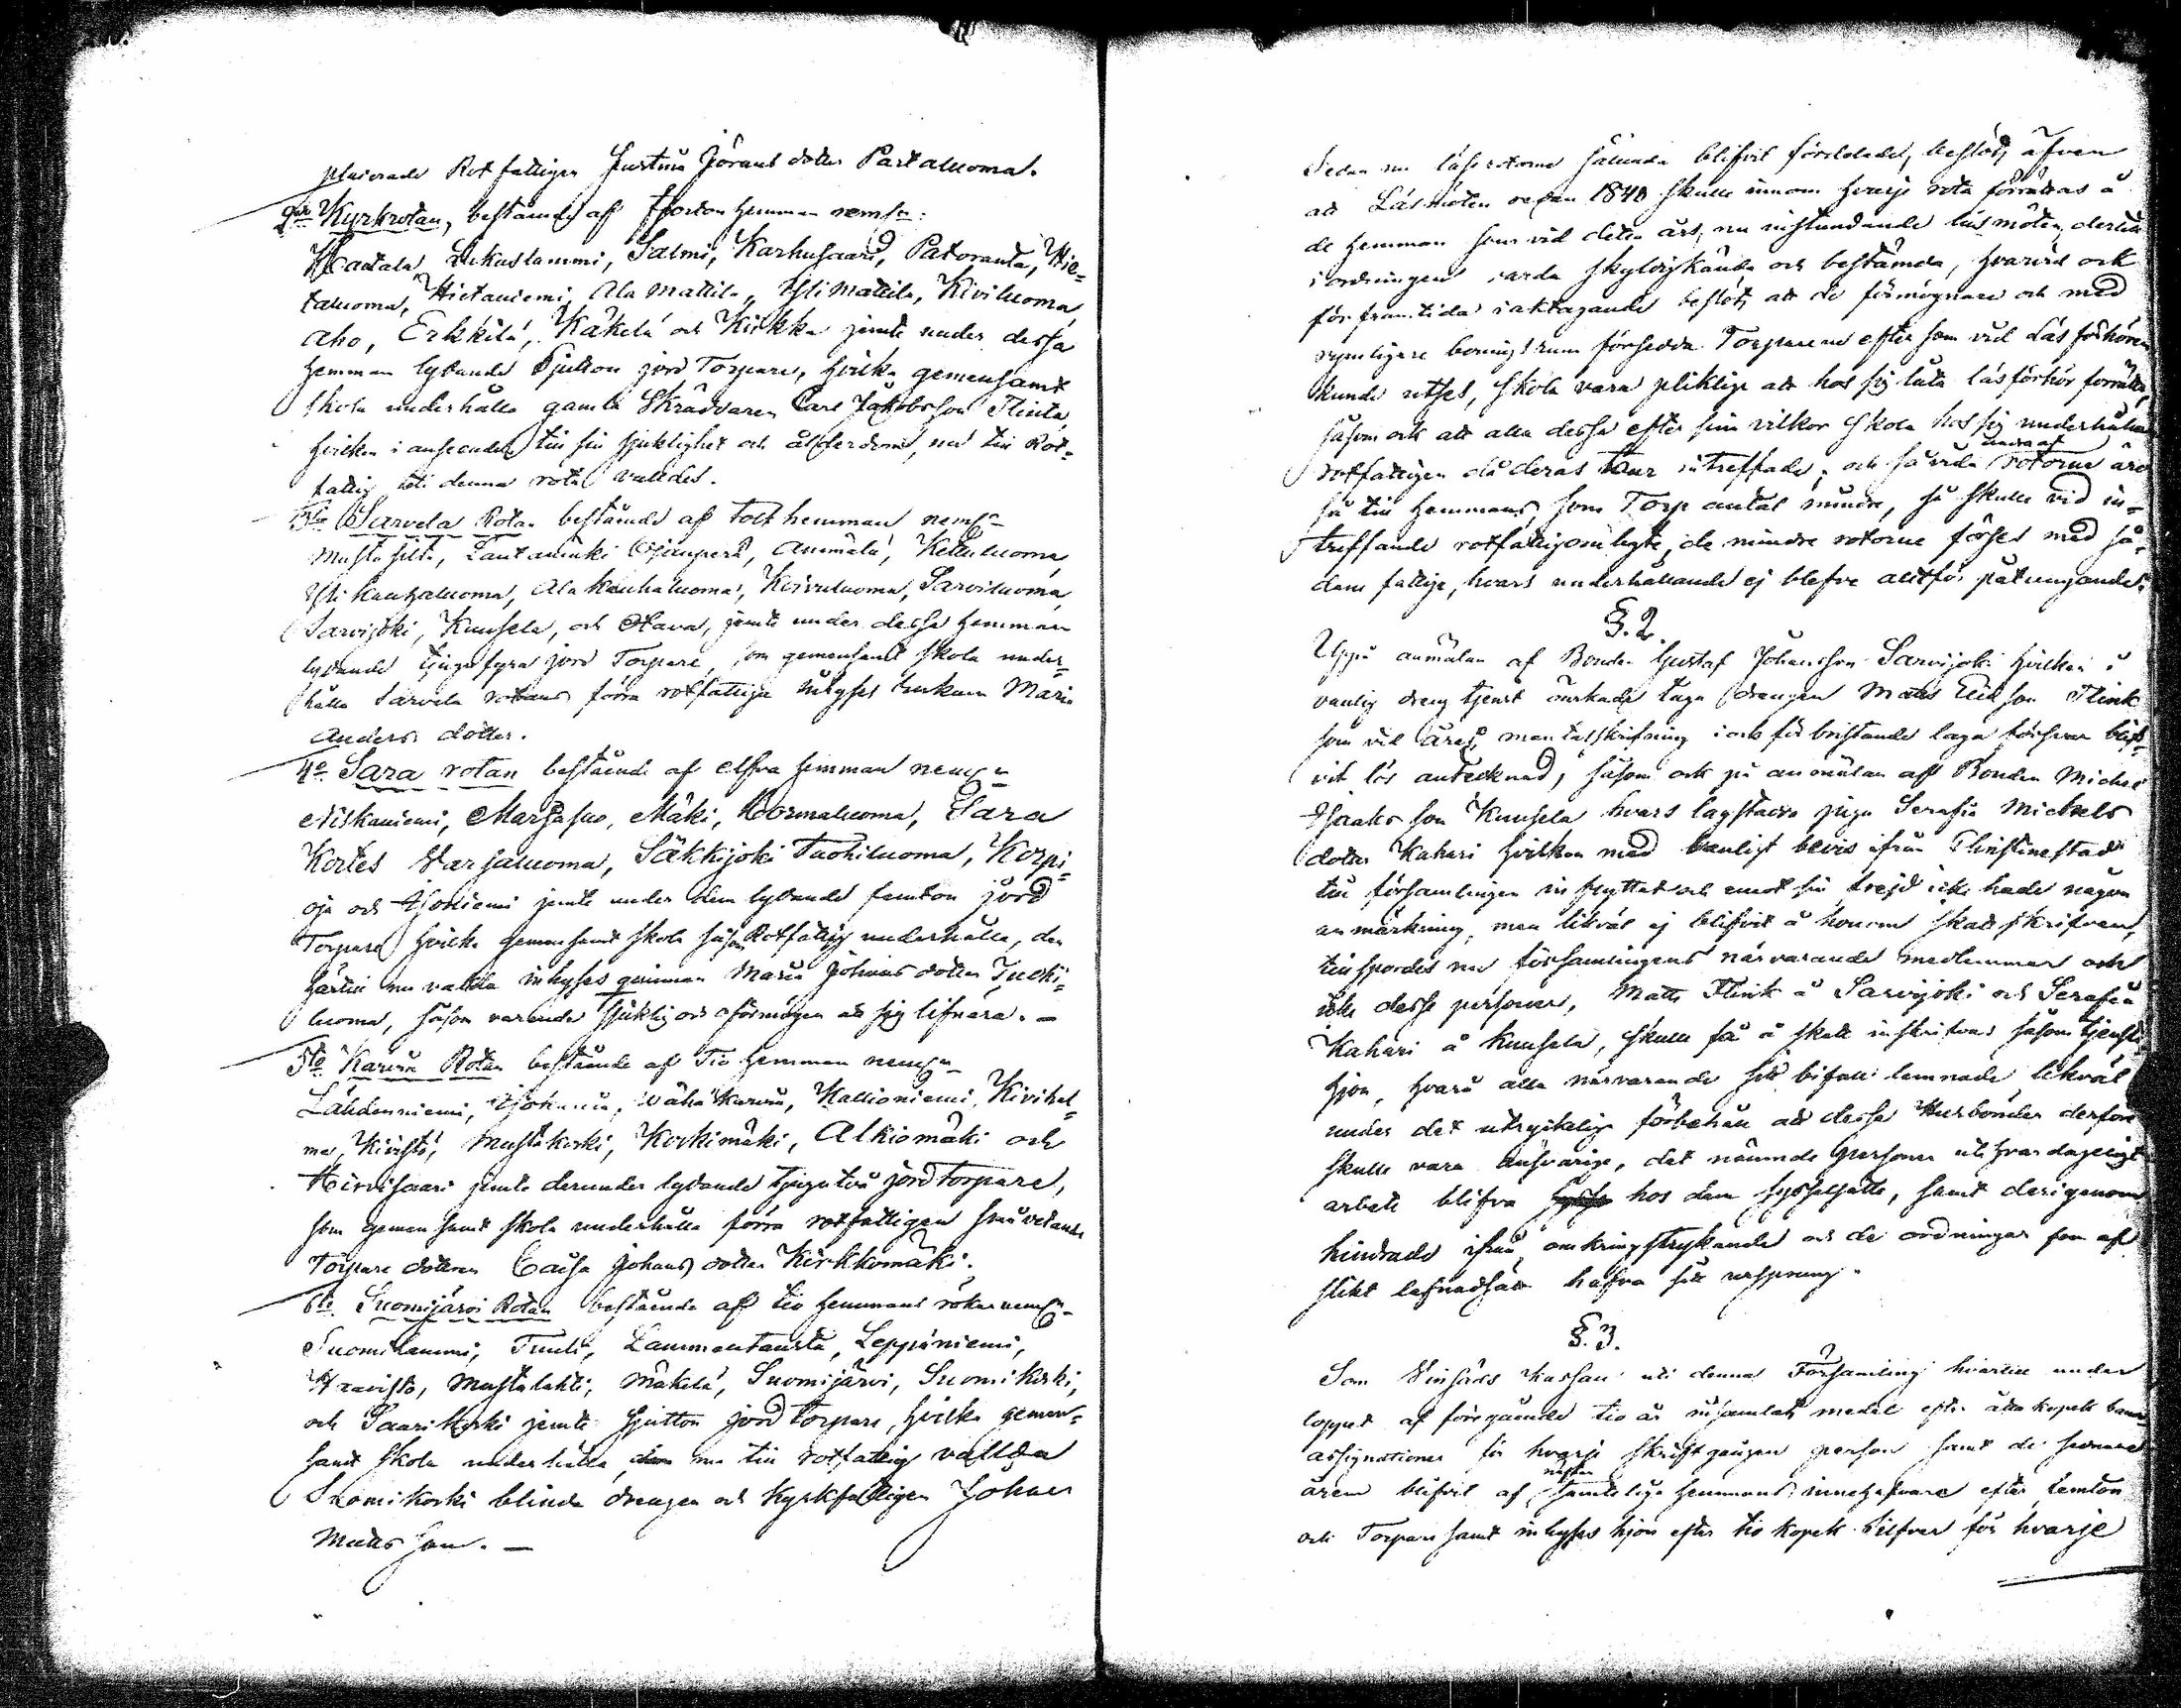 placerade Rotfattigen Justina Jörans dotter Partaluoma.
2do Kyrkrotan, bestående af fjorton hemman neml:
Haatala Lukuslammi, Salmi, Karhusaari, Patoranta, Hie-
taluoma, Hietaniemi, Ala Mattila, Yli Mattila, Kiviluoma,
Aho, Erkkilä, Käkelä och Kirkka jemte under dessa
hemman lydande Sjutton jord Torpare, hvilka gemensamt
skola underhålla gamla Skräddaren Carl Jakobsson Flinta,
hvilken i anseende till sin sjuklighet och ålderdom, nu till Rot-
fattig uti denna rota valdes.
3tio Sarvela Rotan bestående af Tolf hemman neml:
Mustasilta, Lautamäki Ojanperä, Ammälä, Ketturluoma,
Yli Kauhaluoma, Ala Kauhaluoma, Koivuluoma, Sarviluoma,
Sarvijoki, Kuusela, och Otava, jemte under dessa hemman
lydande tjugufyra jord Torpare, som gemensamt skola under-
hålla Sarvela rotans förra rotfattiga inhyses enkan Maria
Anders dotter.
4o Sara rotan bestående af elfva hemman neml:
Niskaniemi, Marjasuo, Mäki, Hormaluoma, Sara
Kortes Varjaluoma, Säkkijoki Tuohiluoma, Korpi-
oja och Isoniemi jemte under dem lydande femton jord
Torpare hvilka gemensamt skola såsom Rotfattig underhålla, den
härtill nu valda inhyses qvinnan Maria Johans dotter Tuohi-
luoma, såsom varande sjuklig och oförmögen att sig lifnära. —
5to Karvia Rotan bestående af Tio hemman neml:
Lähdenniemi, Ojokunin, Wähä Karvia, Kallioniemi, Kivikel-
ma, Kivistö, Mustakoski, Korkimäki, Alkiomäki och
Hirvisaari jemte derunder lydande tjugutvå jord torpare,
som gemensamt skola underhålla förra rotfattigen svårvetande
Torpare dottren Caisa Johans dotter Kirkkomäki.
6to Suomijärvi Rotan bestående af tio hemmans rökar neml:
Suomilammi, Tuuli, Lammentausta, Leppäniemi,
Haavisto, Mustalahti, Mäkelä, Suomijärvi, Suomikoski,
och Saarikoski jemte Sjutton jord torpare, hvilka gemen-
samt skola underhålla den nu till rotfattig vallda
Suomikoski blinda drengen och Kyrkfattigen Johan
Matts son. —
Sedan nu läserotorne sålunda blifvit fördelade, beslöts äfven
att Läsmöten redan 1840 skulle innom hvarje rota förrättas å
de hemman som vid detta års, nu instundande läsmöten, dertill
i ordningen varda skyldigkända och bestämda, hvarvid ock
för framtida iakttagande beslöts att de förmögnare och med
rymligare boningsrum försedda Torparene efter som vid Läsförhören
kunde utses, skola vara pliktige att hos sig låta läsförhör förrättas,
såsom ock att alla dessa efter sina vilkor skola hos sig underhålla
rotfattigen då deras tour inträffade; och såvida andra af rotorne äro
så till Hemmans, som Torp antal mindre, så skulle vid in-
träffande rotfattigombyte, de mindre rotorne förses med så-
dane fattige, hvars underhållande ej blefve alltför påtungande.
§. 2.
Uppå anmälan af Bonden Gustaf Johansson Sarvijoki hvilken i
vanlig dreng tjenst önskade taga drengen Matts Erikson Flink
som vid årets mantalskrifning i och för bristande laga försvar blif-
vit lös antecknad, såsom ock på anmälan af Bonden Michel
Isaaks son Kuusela hvars lagstadda piga Serafia Michels
dotter Kahari hvilken med vanligt bevis ifrån Christinestad
till församlingen inflyttat och emot sin frejd icke hade någon
anmärkning, men likväl ej blifvit å honom skattskrifven,
tillspordes nu församlingens närvarande medlemmar om
icke desse personer, Matts Flink å Sarvijoki och Serafia
Kahari å Kuusela, skulle få å skatt inskrifvas såsom tjenste-
hjon, hvarå alla närvarande sitt bifall lemnade, likväl
under det utryckelige förbehåll att desse Husbönder derföre
skulle vara ansvarige, det nämnde personer uti hvar dagligt
arbete blifva hos dem sysselsatte, samt derigenom
hindrade ifrån omkringstrykande och de oordningar som af
slikt lefnadssätt hafva sitt ursprung.
§. 3.
Som Vinsäds Kassan uti denna Församling hvartill under
loppet af föregående tio år insamlats medel efter åtta kopek banco
assignationer för hvarje skriftgången person samt de sednare
åren blifvit af nästan samtelige hemmans innehafvare efter femton
och Torpare samt inhyses hjon efter tio kopek Silfver för hvarje